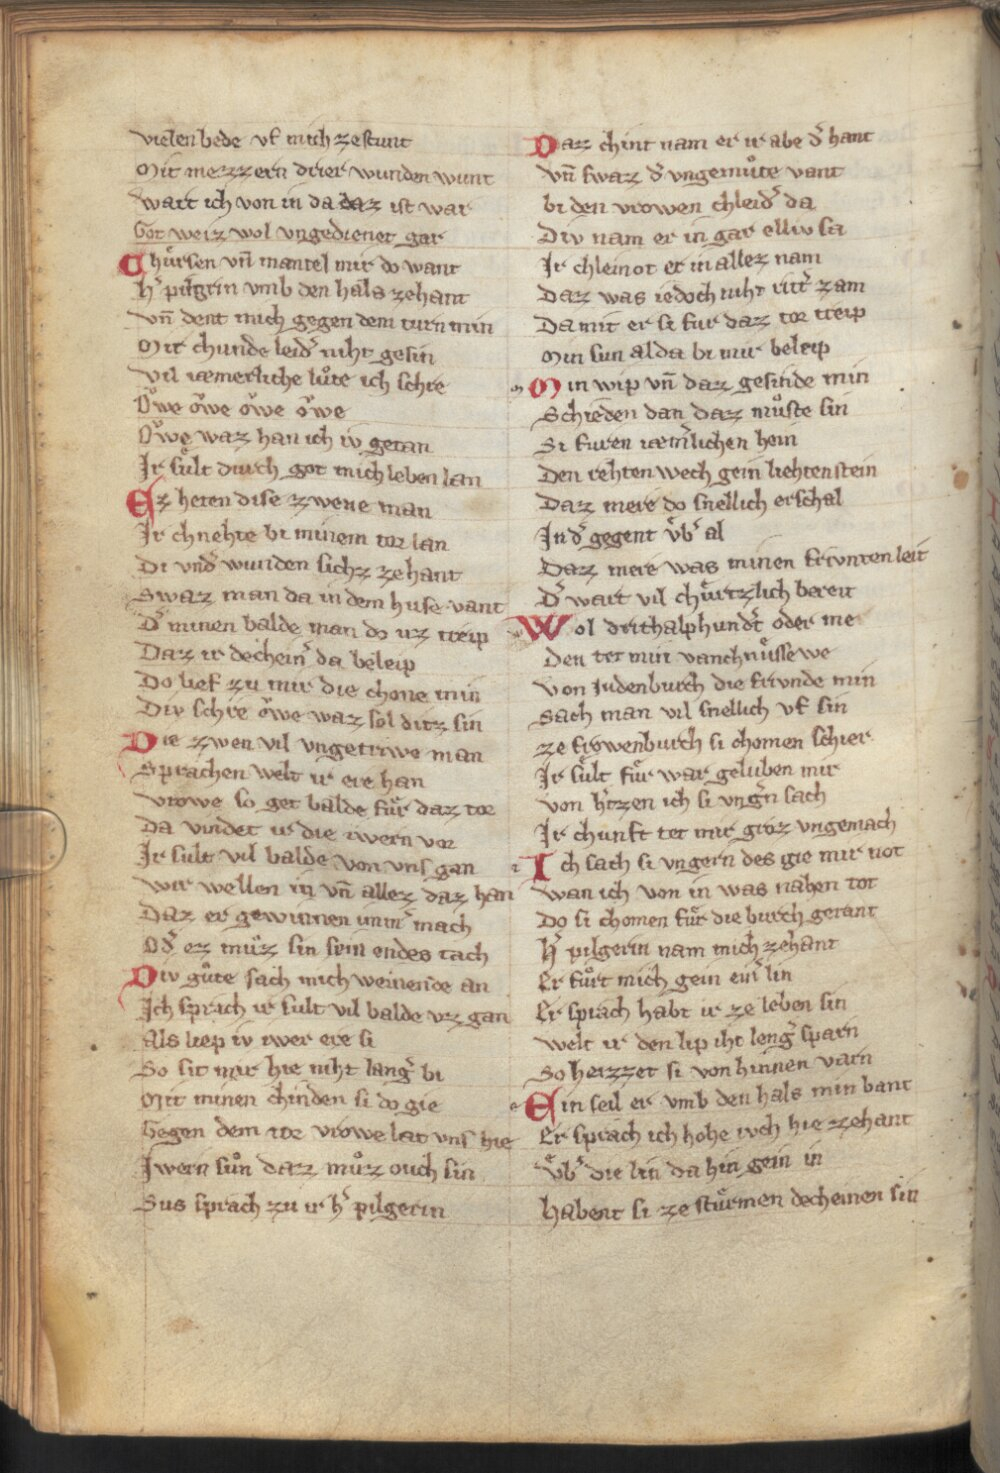 vielen bede vf mich ze stunt
Mit mezzern drier wunden wunt
wart ich von in da daz ist war
Got weiz wol vngedienet gar
Chuͤrsen vn̄ mantel mir do want
h͛ pilgrin vmb den hals zehant
vn̄ dent mich gegen dem turn min
Mir chunde leid͛ niht gesin
Vil iæmerliche luͦte ich schre
Oͮwe oͮwe oͮwe oͮwe
Oͮwe waz han ich iv getan
Ir suͤlt durch got mich leben lan
Ez heten dise zwene man
Ir chnehte bi minem tor lan
Di vnd͛ wunden sichz zehant
Swaz man da in dem huse vant
D͛ minen balde man do uz treip
Daz ir dechein͛ da beleip
Do lief zu mir die chone min
Div schre oͮwe waz sol ditz sin
Die zwen vil vngetriwe man
Sprachen welt ir ere han
Vrowe so get balde fuͤr daz tor
Da vindet ir die iwern vor
Ir sult vil balde von vns gan
wir wellen in vn̄ allez daz han
Daz er gewinnen imm͛ mach
Od͛ ez muͤz sin sein endes tach
Div guͦte sach mich weinende an
Ich sprach ir sult vil balde vz gan
Als liep iv iwer ere si
So sit mir hie niht lang͛ bi
Mit minen chinden si do gie
Gegen dem tor vrowe lat vns hie
Iwern suͦn daz muͦz ouch sin
Sus sprach zu ir h͛ pilgerin
Daz chint nam er ir abe d͛ hant
Vn̄ swaz d͛ vngemuͦte vant
bi den vrowen chleid͛ da
Div nam er in gar elliv sa
Ir chleinot er in allez nam
Daz was iedoch niht ritt͛ zam
Da mit er si fur daz tor treip
Min sun alda bi mir beleip
Min wip vn̄ daz gesinde min
Schieden dan daz muͦste sin
Si furen iæm͛lichen hein
Den rehten wech gein liehtenstein
Daz mere do snellich erschal
In d͛ gegent vͤb͛ al
Daz mere was minen frivnten leit
D͛ wart vil chuͤrtzlich bereit
Wol drithalphund͛t oder me
Den tet min vanchnuͤsse we
Von Judenburch die frivnde min
Sach man vil snellich vf sin
ze frowenburch si chomen schier
Ir suͤlt fuͤr war gelüben mir
von h͛tzen ich si vng͛n sach
Ir chunft tet mir groz vngemach
Ich sach si vngern des gie mir not
wan ich von in was nahen tot
Do si chomen fuͤr die burch gerant
h͛ pilgerin nam mich zehant
Er fuͦrt mich gein ein͛ lin
Er sprach habt ir ze leben sin
welt ir den lip iht leng͛ sparn
So heizzet si von hinnen varn
Ein seil er vmb den hals min bant
Er sprach ich hohe ivch hie zehant
Vͤb͛ die lin da hin gein in
Habent si ze stuͤrmen decheinen sin